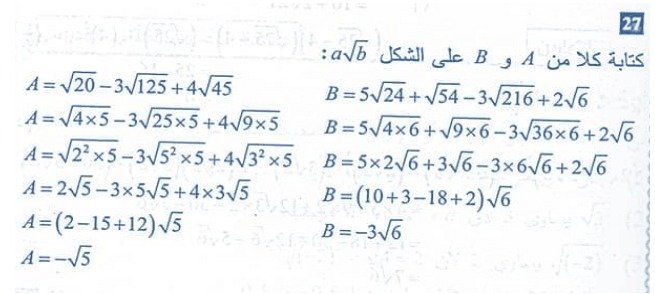 27
كتابة كلا من A و B على الشكل a√b :
A = √20 − 3√125 + 4√45
A = √(4×5) − 3√(25×5) + 4√(9×5)
A = √(2²×5) − 3√(5²×5) + 4√(3²×5)
A = 2√5 − 3×5√5 + 4×3√5
A = (2−15+12)√5
A = −√5
B = 5√24 + √54 − 3√216 + 2√6
B = 5√(4×6) + √(9×6) − 3√(36×6) + 2√6
B = 5×2√6 + 3√6 − 3×6√6 + 2√6
B = (10+3−18+2)√6
B = −3√6